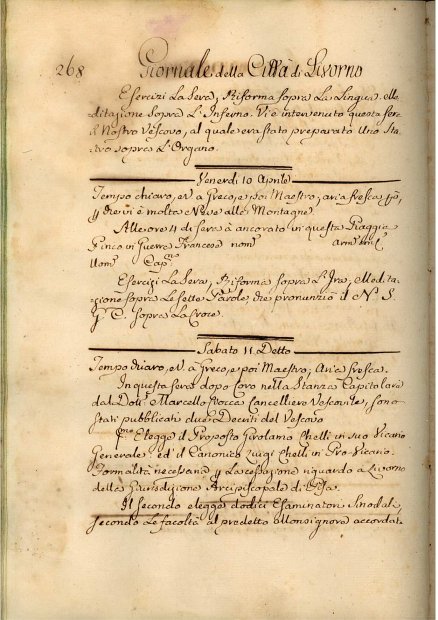 268 Giornale della Città di Livorno
Esercizi La Sera, Riforma sopra La Lingua. Me
ditazione sopra L'Inferno. Vi è intervenuto questa sera
il Nostro Vescovo, al quale era stato preparato Uno Sta
tivo sopra L'Organo.
Venerdi 10 Aprile
Tempo chiaro, e V. à Greco, e poi Maestro, aria fresca
vi è molta Neve alle Montagne.
Alle ore 4 di sera à ancorato in questa Spiaggia
Pinco in Guerra Francese nom.
Uom. Cap.
Esercizi La Sera, Riforma sopra L'Ira, Medita
zione sopra Le sette Parole, che pronunziò il N. S.
G. C. sopra La Croce.
Sabato 11 Detto
Tempo chiaro, e V. à Greco, e poi Maestro, Aria fresca.
In questa sera dopo Coro nella Stanza Capitolare
dal Dott. Marcello Rocca Cancelliere Vescovile, sono
Stati pubblicati due Decreti del Vescovo
Elegge il Proposto Girolamo Chelli in suo Vicario
Generale ed il Canonico Luigi Chelli in Pro-Vicario.
Formalità necessaria La cessazione riguardo a Livorno
della Giurisdizione Arcivescopale di Pisa.
Il Secondo elegge dodici Esaminatori Sinodali,
secondo Le facoltà al predetto Monsignore accordat